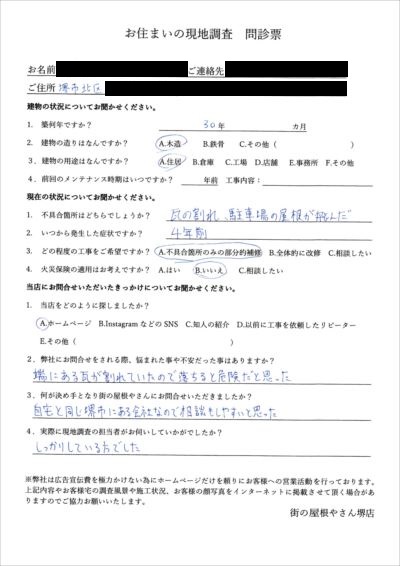 お住まいの現地調査　問診票
お名前　ご連絡先
ご住所 堺市北区
建物の状況についてお聞かせください。
1．築何年ですか？　30年　カ月
2．建物の造りはなんですか？　A.木造　B.鉄骨　C.その他（　）
3．建物の用途はなんですか？　A.住居　B.倉庫　C.工場　D.店舗　E.事務所　F.その他
4．前回のメンテナンス時期はいつですか？　年前　工事内容：
現在の状況についてお聞かせください。
1．不具合箇所はどちらでしょうか？　瓦の割れ、駐車場の屋根が飛んだ
2．いつから発生した症状ですか？　4年前
3．どの程度の工事をご希望ですか？　A.不具合箇所のみの部分的補修　B.全体的に改修　C.相談したい
4．火災保険の適用はお考えですか？　A.はい　B.いいえ　C.相談したい
当店にお問合せいただいたきっかけについてお聞かせください。
1．当店をどのように探しましたか？
A.ホームページ　B.Instagram などの SNS　C.知人の紹介　D.以前に工事を依頼したリピーター
E.その他（　）
2．弊社にお問合せをされる際、悩まれた事や不安だった事はありますか？
端にある瓦が割れていたので落ちると危険だと思った
3．何が決め手となり街の屋根やさんにお問合せいただきましたか？
自宅と同じ堺市にある会社なので相談もしやすいと思った
4．実際に現地調査の担当者がお伺いしていかがでしたか？
しっかりしている方でした
※弊社は広告宣伝費を極力かけない為にホームページだけを頼りにお客様への営業活動を行っております。
上記内容やお客様宅の調査風景や施工状況、お客様の顔写真をインターネットに掲載させて頂く場合があ
りますのでご協力お願いいたします。
街の屋根やさん堺店